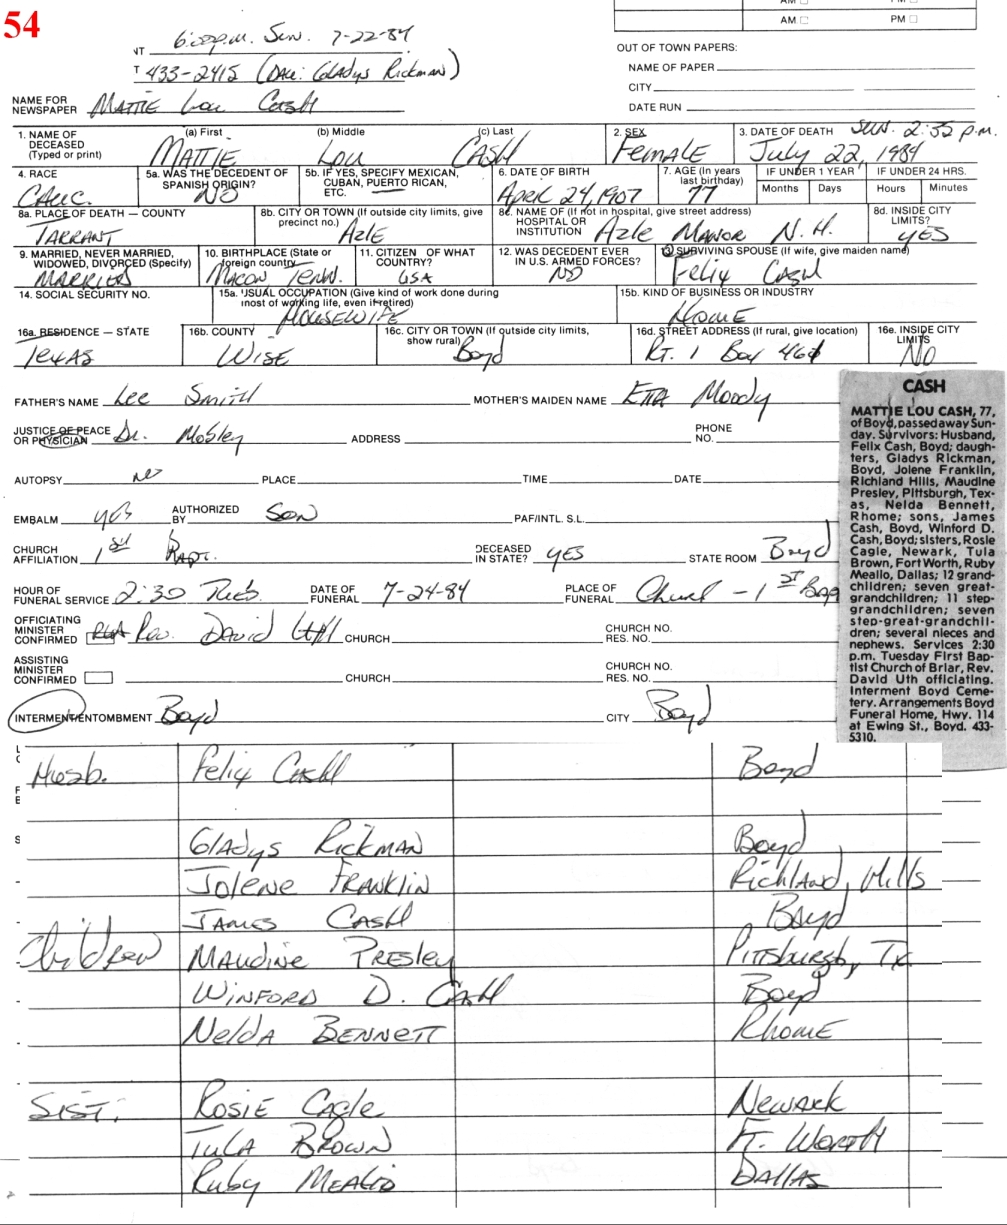 54
AM PM
AM PM
NT 6:00 p.m. Sun. 7-22-84
T 433-2415 (Dau: Gladys Rickman)
OUT OF TOWN PAPERS:
NAME OF PAPER
CITY
DATE RUN
NAME FOR NEWSPAPER Mattie Lou Cash
1. NAME OF DECEASED (Typed or print) (a) First MATTIE (b) Middle Lou (c) Last CASH
2. SEX Female
3. DATE OF DEATH Sun. 2:35 p.m. July 22, 1984
4. RACE Cauc.
5a. WAS THE DECEDENT OF SPANISH ORIGIN? NO
5b. IF YES, SPECIFY MEXICAN, CUBAN, PUERTO RICAN, ETC.
6. DATE OF BIRTH April 24, 1907
7. AGE (In years last birthday) 77
IF UNDER 1 YEAR Months Days
IF UNDER 24 HRS. Hours Minutes
8a. PLACE OF DEATH — COUNTY TARRANT
8b. CITY OR TOWN (If outside city limits, give precinct no.) Azle
8c. NAME OF (If not in hospital, give street address) HOSPITAL OR INSTITUTION Azle Manor N.H.
8d. INSIDE CITY LIMITS? yes
9. MARRIED, NEVER MARRIED, WIDOWED, DIVORCED (Specify) MARRIED
10. BIRTHPLACE (State or foreign country) Macon Tenn.
11. CITIZEN OF WHAT COUNTRY? USA
12. WAS DECEDENT EVER IN U.S. ARMED FORCES? NO
SURVIVING SPOUSE (If wife, give maiden name) Felix Cash
14. SOCIAL SECURITY NO.
15a. USUAL OCCUPATION (Give kind of work done during most of working life, even if retired) Housewife
15b. KIND OF BUSINESS OR INDUSTRY Home
16a. RESIDENCE — STATE Texas
16b. COUNTY Wise
16c. CITY OR TOWN (If outside city limits, show rural) Boyd
16d. STREET ADDRESS (If rural, give location) Rt. 1 Box
16e. INSIDE CITY LIMITS No
FATHER'S NAME Lee Smith MOTHER'S MAIDEN NAME Etta Moody
JUSTICE OF PEACE OR PHYSICIAN Dr. Mobley ADDRESS PHONE NO.
AUTOPSY no PLACE TIME DATE
EMBALM yes AUTHORIZED BY Son PAF/INTL. S.L.
CHURCH AFFILIATION 1st Bapt. DECEASED IN STATE? yes STATE ROOM Boyd
HOUR OF FUNERAL SERVICE 2:30 Tues. DATE OF FUNERAL 7-24-84 PLACE OF FUNERAL Church - 1st Bap
OFFICIATING MINISTER CONFIRMED Rev. David Uth CHURCH CHURCH NO. RES. NO.
ASSISTING MINISTER CONFIRMED CHURCH CHURCH NO. RES. NO.
INTERMENT/ENTOMBMENT Boyd CITY Boyd
CASH
MATTIE LOU CASH, 77,
of Boyd, passed away Sun-
day. Survivors: Husband,
Felix Cash, Boyd; daugh-
ters, Gladys Rickman,
Boyd, Jolene Franklin,
Richland Hills, Maudine
Presley, Pittsburgh, Tex-
as, Nelda Bennett,
Rhome; sons, James
Cash, Boyd, Winford D.
Cash, Boyd; sisters, Rosie
Cagle, Newark, Tula
Brown, Fort Worth, Ruby
Meallo, Dallas; 12 grand-
children; seven great-
grandchildren; 11 step-
grandchildren; seven
step-great-grandchil-
dren; several nieces and
nephews. Services 2:30
p.m. Tuesday First Bap-
tist Church of Briar, Rev.
David Uth officiating.
Interment Boyd Ceme-
tery. Arrangements Boyd
Funeral Home, Hwy. 114
at Ewing St., Boyd. 433-
5310.
Husb. Felix Cash Boyd
Gladys Rickman Boyd
Jolene Franklin Richland Hills
James Cash Boyd
Children Maudine Presley Pittsburgh, Tx.
Winford D. Cash Boyd
Nelda Bennett Rhome
Sist. Rosie Cagle Newark
Tula Brown Ft. Worth
Ruby Meallo Dallas